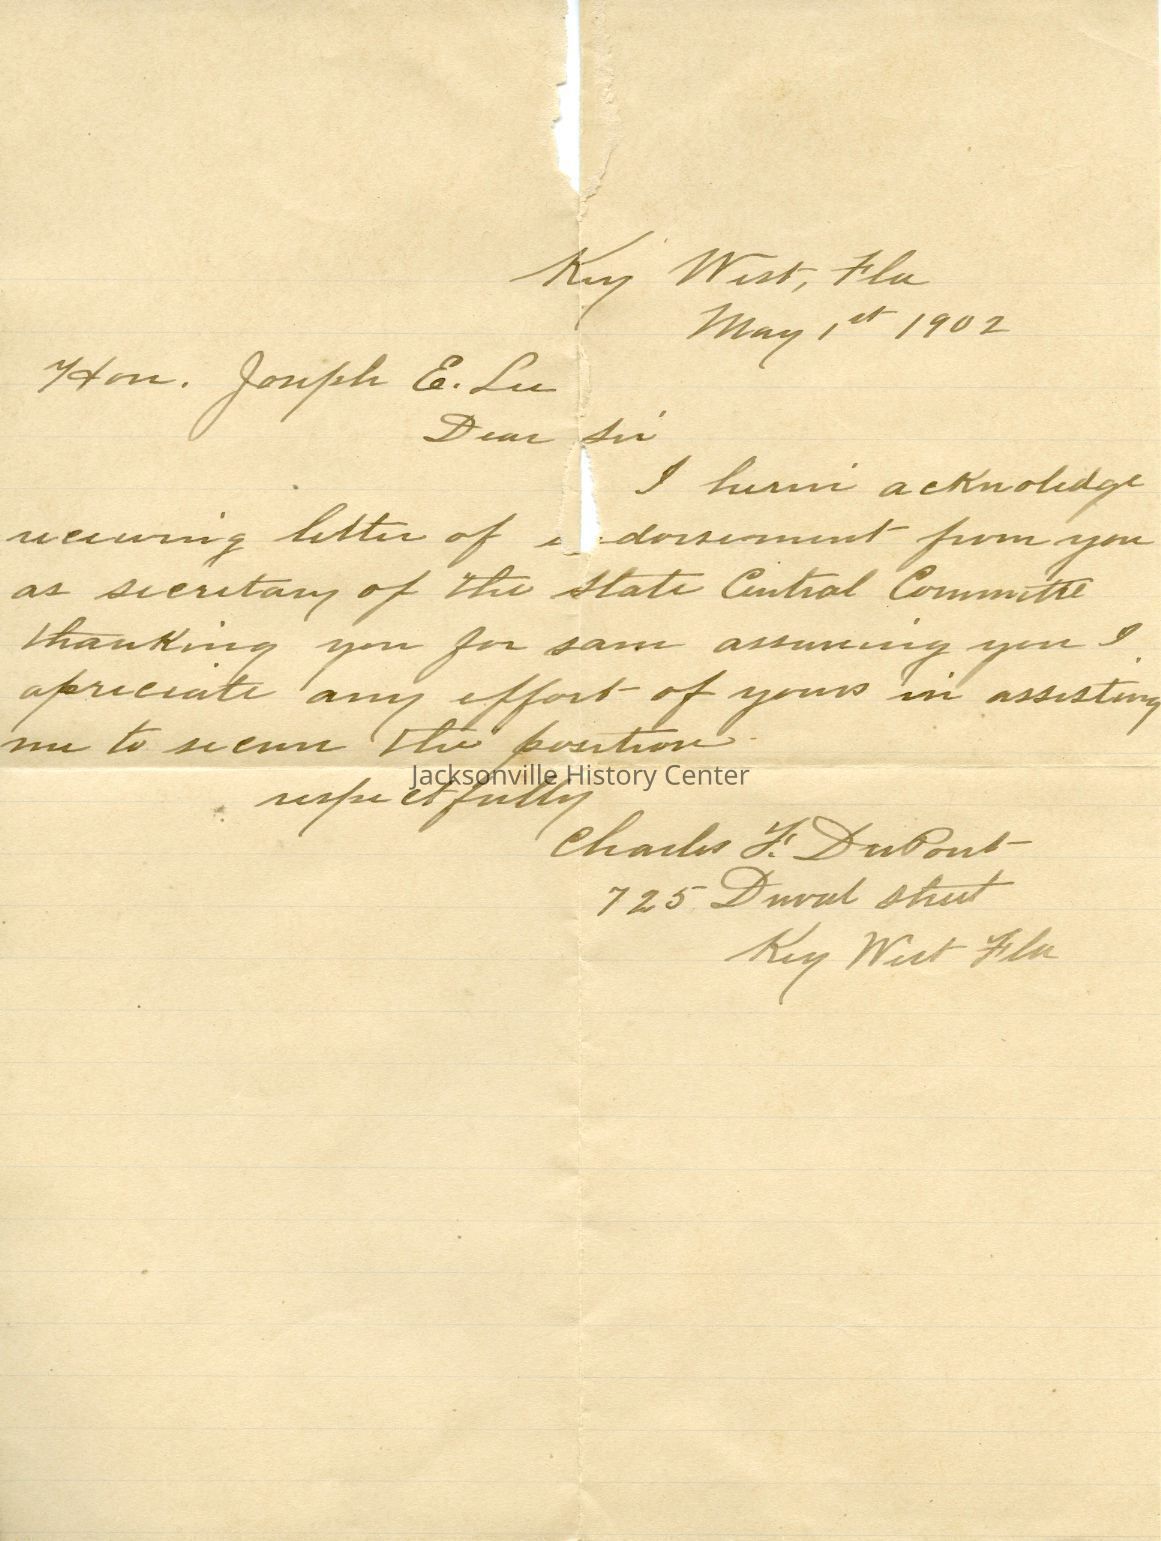 Key West, Fla
May 1st 1902
Hon. Joseph E. Lee
Dear Sir
I herin acknoledge
receiving letter of dorsement from you
as secretary of the State Central Committe
thanking you for same assureing you I
apreciate any effort of yours in assisting
me to secure the position
Jacksonville History Center
respectfully
Charles F. DuPont
725 Duval street
Key West Fla